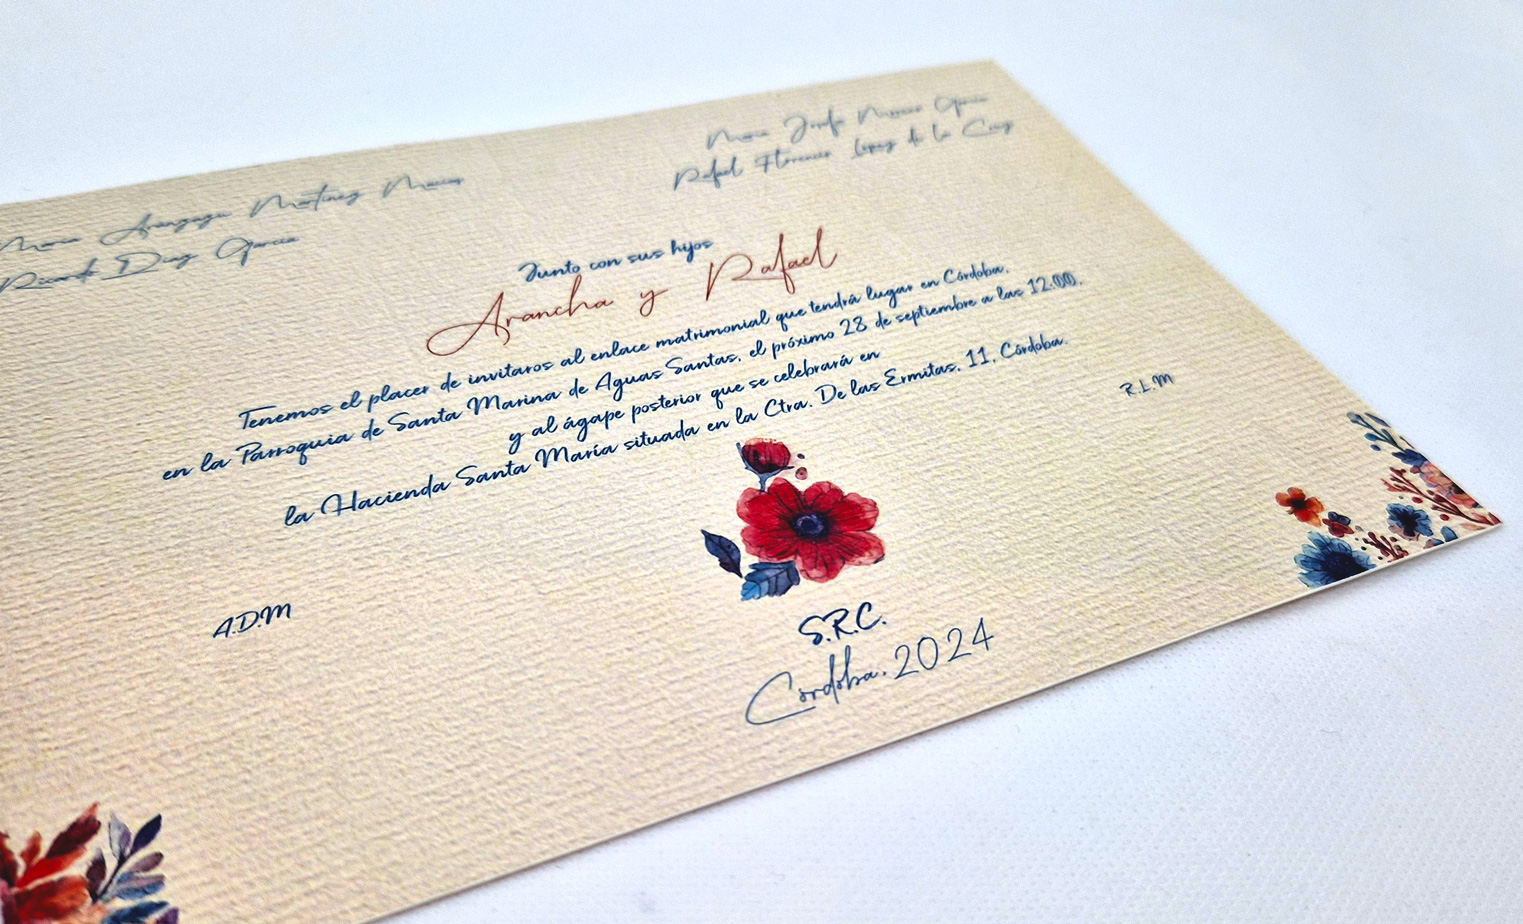 María Aránzazu Martínez Macías
Ricardo Díaz García
María Josefa Moreno García
Rafael Florencio López de la Cruz
Junto con sus hijos
Arancha y Rafael
Tenemos el placer de invitaros al enlace matrimonial que tendrá lugar en Córdoba,
en la Parroquia de Santa Marina de Aguas Santas, el próximo 28 de septiembre a las 12:00,
y al ágape posterior que se celebrará en
la Hacienda Santa María situada en la Ctra. De las Ermitas, 11, Córdoba.
R.L.M
A.D.M
S.R.C.
Córdoba, 2024